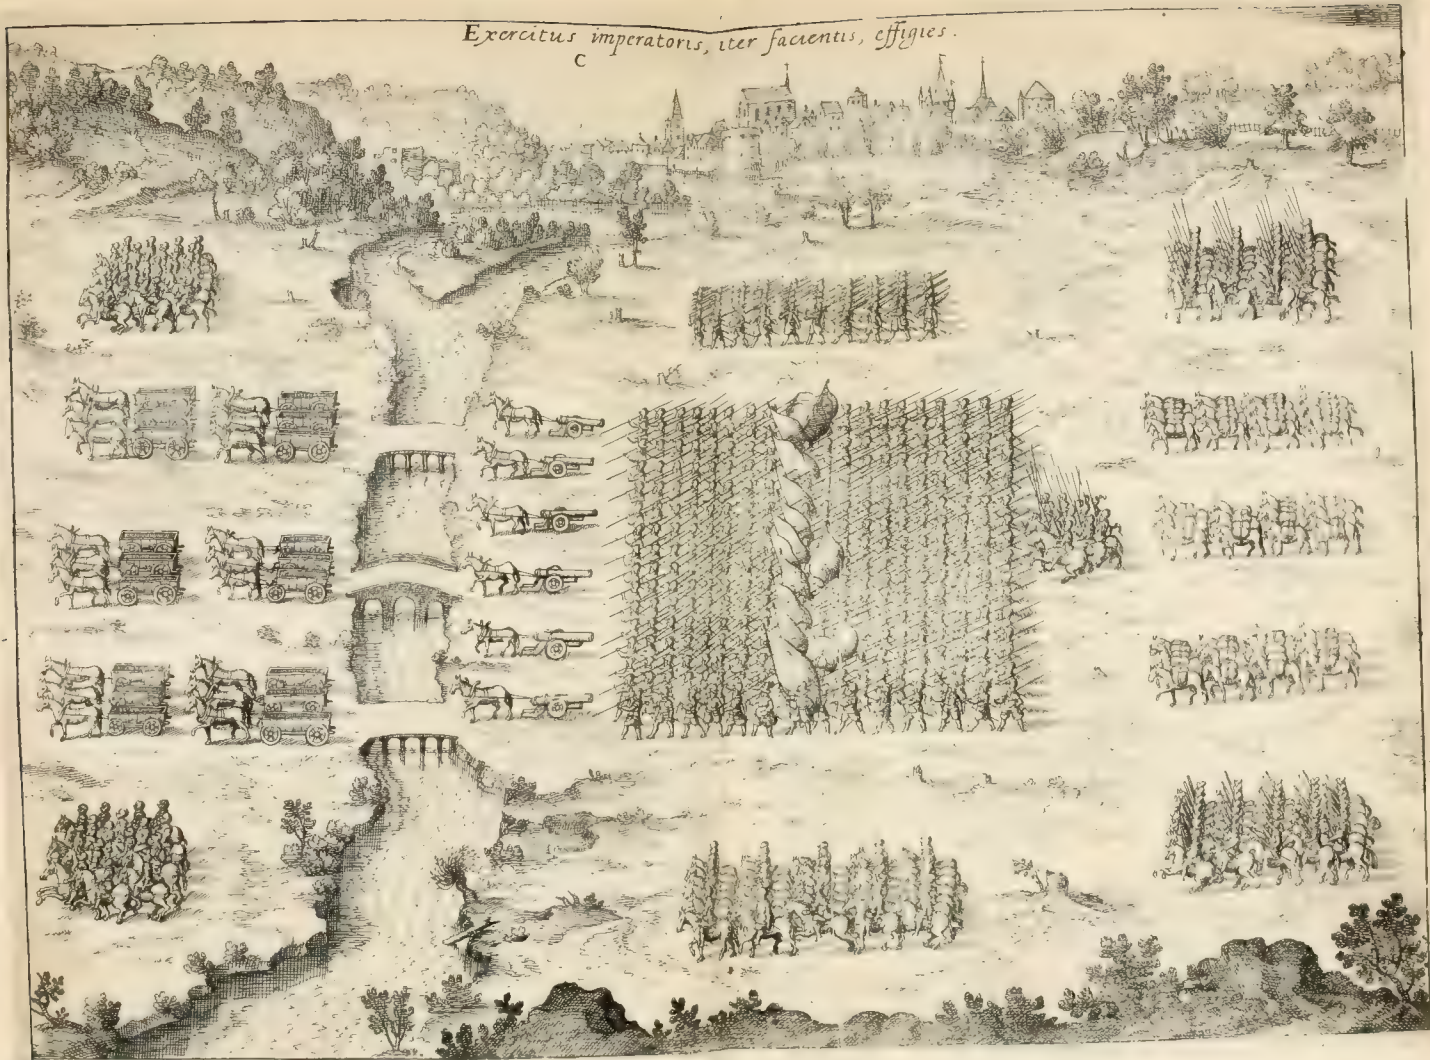 Exercitus imperatoris, iter facientis, effigies.
C